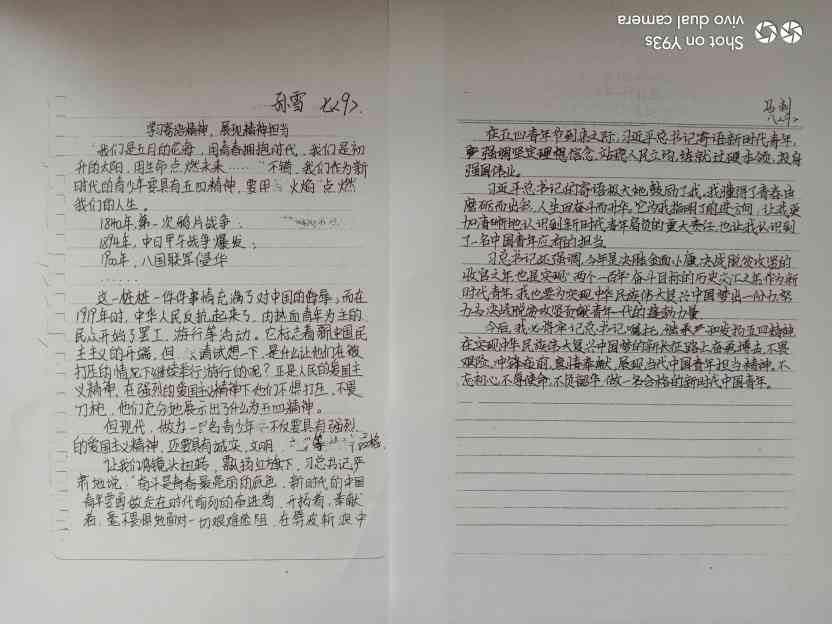 孙雪 七<9>.
学习寄语精神，展现精神担当
"我们是五月的花海，用青春拥抱时代，我们是初
升的太阳，用生命点燃未来……"不错，我们作为新
时代的青少年要具有五四精神，要用火焰点燃
我们的人生。
1840年，第一次鸦片战争；
1894年，中日甲午战争爆发；
1900年，八国联军侵华
……
这一桩桩一件件事情充满了对中国的侮辱，而在
1919年时，中华人民反抗起来了，由热血青年为主的
民众开始了罢工、游行等活动。它标志着新民主
主义的开端，但请试想一下，是什么让他们在被
打压的情况下继续举行游行的呢？正是人民的爱国主
义精神，在强烈的爱国主义精神下他们不惧打压，不畏
刀枪，他们充分地展示出了什么为五四精神。
但现代，做为一名青少年不仅要具有强烈
的爱国主义精神，还要具有诚实、文明等品格。
让我们将镜头扭转，飘扬红旗下，习总书记严
肃地说："奋斗是青春最亮丽的底色，新时代的中国
青年要勇做走在时代前列的奋进者、开拓者、奉献
者，毫不畏惧地面对一切艰难险阻，在劈波斩浪中
马利
八<9>
在五四青年节到来之际，习近平总书记寄语新时代青年，
要强调坚定理想信念，站稳人民立场，练就过硬本领，投身
强国伟业。
习近平总书记的寄语极大地鼓励了我。我懂得了青春由
磨砺而出彩，人生因奋斗而升华。它为我指明了前进方向，让我更
加清晰地认识到新时代青年肩负的重大责任，也让我认识到
了一名中国青年应有的担当。
习总书记还强调，今年是决胜全面小康，决战脱贫攻坚的
收官之年，也是实现"两个一百年"奋斗目标的历史交汇之年，作为新
时代青年，我也要为实现中华民族伟大复兴中国梦出一份力，努
力为决战脱贫攻坚贡献青年一代的蓬勃力量。
今后，我必将牢记总书记嘱托，继承和发扬五四精神，
在实现中华民族伟大复兴中国梦的新长征路上奋勇搏击，不畏
艰险，冲锋在前，真情奉献，展现当代中国青年担当精神，不
忘初心，不辱使命，不负韶华，做一名合格的新时代中国青年。
Shot on Y93s
vivo dual camera